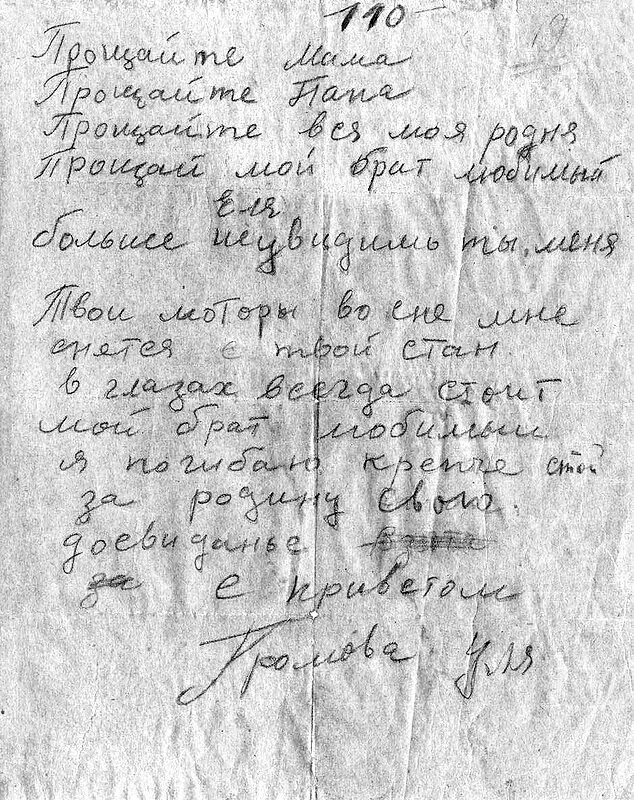 110
19
Прощайте мама
Прощайте Папа
Прощайте вся моя родня
Прощай мой брат любимый
Еля
больше неувидишь ты меня
Твои моторы во сне мне
снется с твой стан
в глазах всегда стоит
мой брат любимый
я погибаю крепче стой
за родину свою.
досвиданье
за
С приветом
Громова Уля